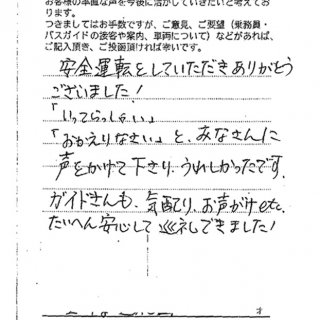 お客様の率直な声を今後に活かしていきたいと考えて
おります。
つきましてはお手数ですが、ご意見、ご要望（乗務員・
バスガイドの接客や案内、車両について）などがあれば、
ご記入頂き、ご投函頂ければ幸いです。
安全運転をしていただきありがとう
ございました!
「いってらっしゃい」
「おかえりなさい」と、みなさんに
声をかけて下さり、うれしかったです。
ガイドさんも、気配り、お声がけetc.
たいへん安心して巡礼できました!
才